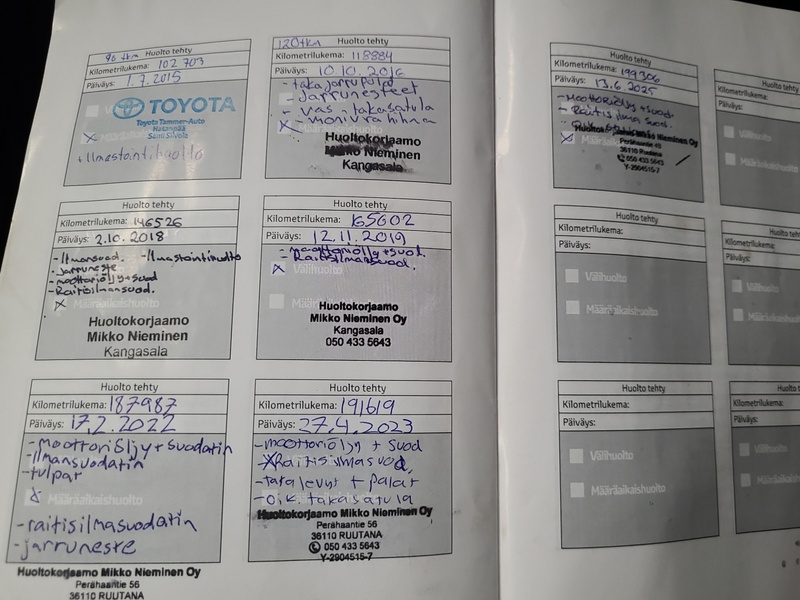 90 tkm Huolto tehty
Kilometrilukema: 102 703
Päiväys: 1.7.2015
TOYOTA
Toyota Tammer-Auto
Hatanpää
+Ilmastointihuolto
120tkm Huolto tehty
Kilometrilukema: 118884
Päiväys: 10.10.2016
- takajarrupalat
- Jarrunesteet
- vas. takasatula
- monivrahihna
Huoltokorjaamo
Mikko Nieminen
Kangasala
Huolto tehty
Kilometrilukema: 146526
Päiväys: 2.10.2018
- Ilmansuod. - Ilmastointihuolto
- Jarruneste
- moottoriöljy+suod
- Raitisilmansuod.
Huoltokorjaamo
Mikko Nieminen
Kangasala
Huolto tehty
Kilometrilukema: 165602
Päiväys: 12.11.2019
- moottoriöljy+suod.
- Raitisilmansuod.
Välihuolto
Määräaikaishuolto
Huoltokorjaamo
Mikko Nieminen Oy
Kangasala
050 433 5643
Huolto tehty
Kilometrilukema: 187987
Päiväys: 17.2.2022
- moottoriöljy + suodatin
- Ilmansuodatin
- tulpat
Määräaikaishuolto
- raitisilmasuodatin
- jarruneste
Huoltokorjaamo Mikko Nieminen Oy
Perähaantie 56
36110 RUUTANA
Huolto tehty
Kilometrilukema: 191619
Päiväys: 27.4.2023
- moottoriöljy + suod
- Raitisilmasuod.
- takalevyt + palat
- oik. takasatula
Huoltokorjaamo Mikko Nieminen Oy
Perähaantie 56
36110 RUUTANA
050 433 5643
Y-2904515-7
Huolto tehty
Kilometrilukema: 199306
Päiväys: 13.6.2025
- Moottoriöljy + suod
- Raitisilma suod.
Mikko Nieminen Oy
36110 RUUTANA
050 433 5643
Y-2904515-7
Huolto tehty
Kilometrilukema:
Päiväys:
Välihuolto
Määräaikaishuolto
Huolto tehty
Kilometrilukema:
Päiväys:
Välihuolto
Määräaikaishuolto
Kilometrilukema:
Päiväys:
Välihuolto
Määräaikaishuolto
Kilometrilukema:
Päiväys:
Välihuolto
Määräaikaishuolto
Huolto tehty
Kilometrilukema:
Päiväys: